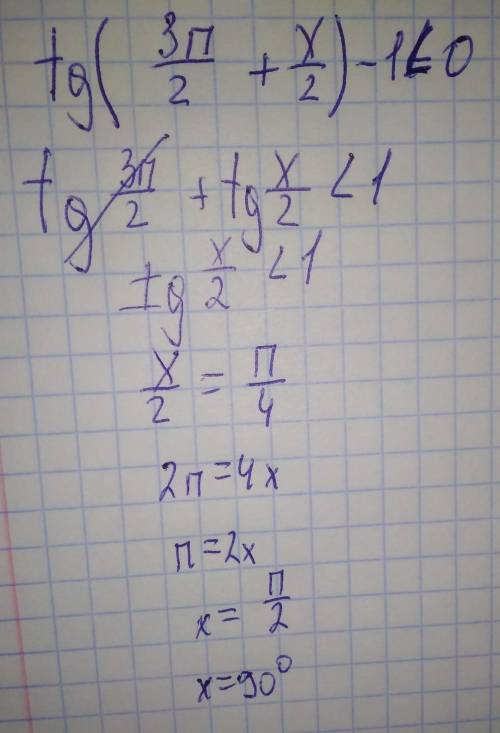 tg(3π/2 + x/2) - 1 < 0
tg 3π/2 + tg x/2 < 1
tg x/2 < 1
x/2 = π/4
2π = 4x
π = 2x
x = π/2
x = 90°